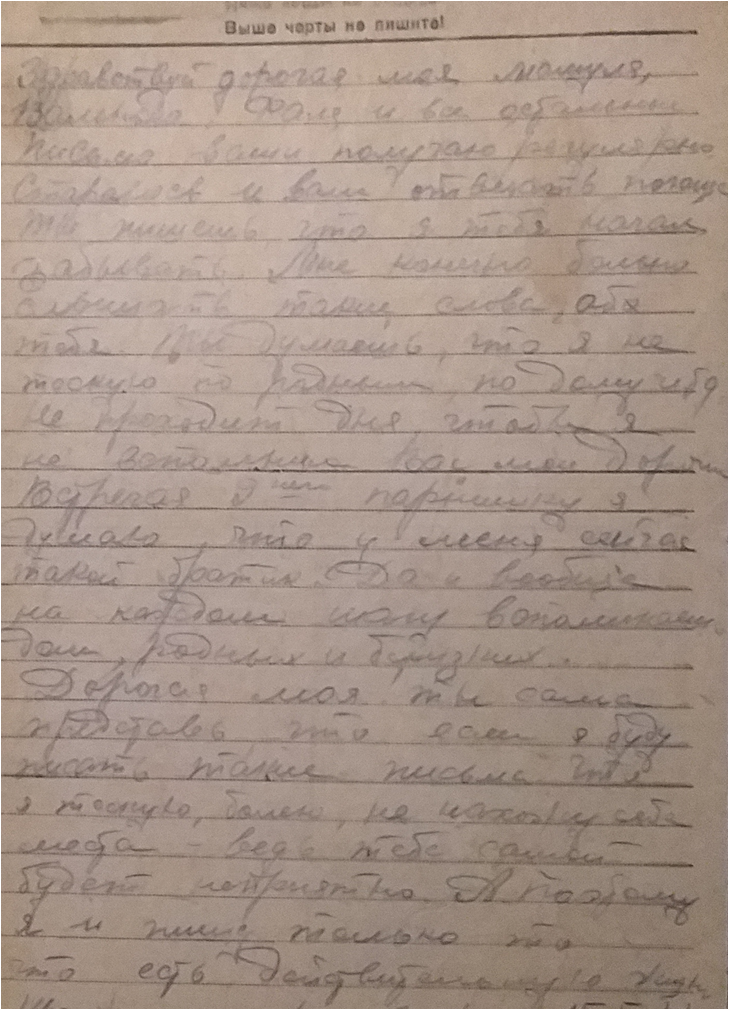 Выше черты не пишите!
Здравствуй дорогая моя мамуля,
и все остальные
Письма ваши получаю регулярно
Стараюсь и вам отвечать почаще
Ты пишешь, что я тебя начал
забывать. Мне конечно больно
слышать такие слова, от
тебя. Ты думаешь, что я не
тоскую по родным, по дому
Не проходит дня, чтобы я
не вспомнил Вас мои дорогие
Встречая 9 парнишку я
думаю, что у меня сейчас
такой братик. Да и вообще
на каждом шагу вспоминаю
дом, родных и близких...
Дорогая моя ты сама
представь что если я буду
писать такие письма что
я тоскую, болею, не нахожу себе
места – ведь тебе самой
будет неприятно. А поэтому
я и пишу только то
что есть